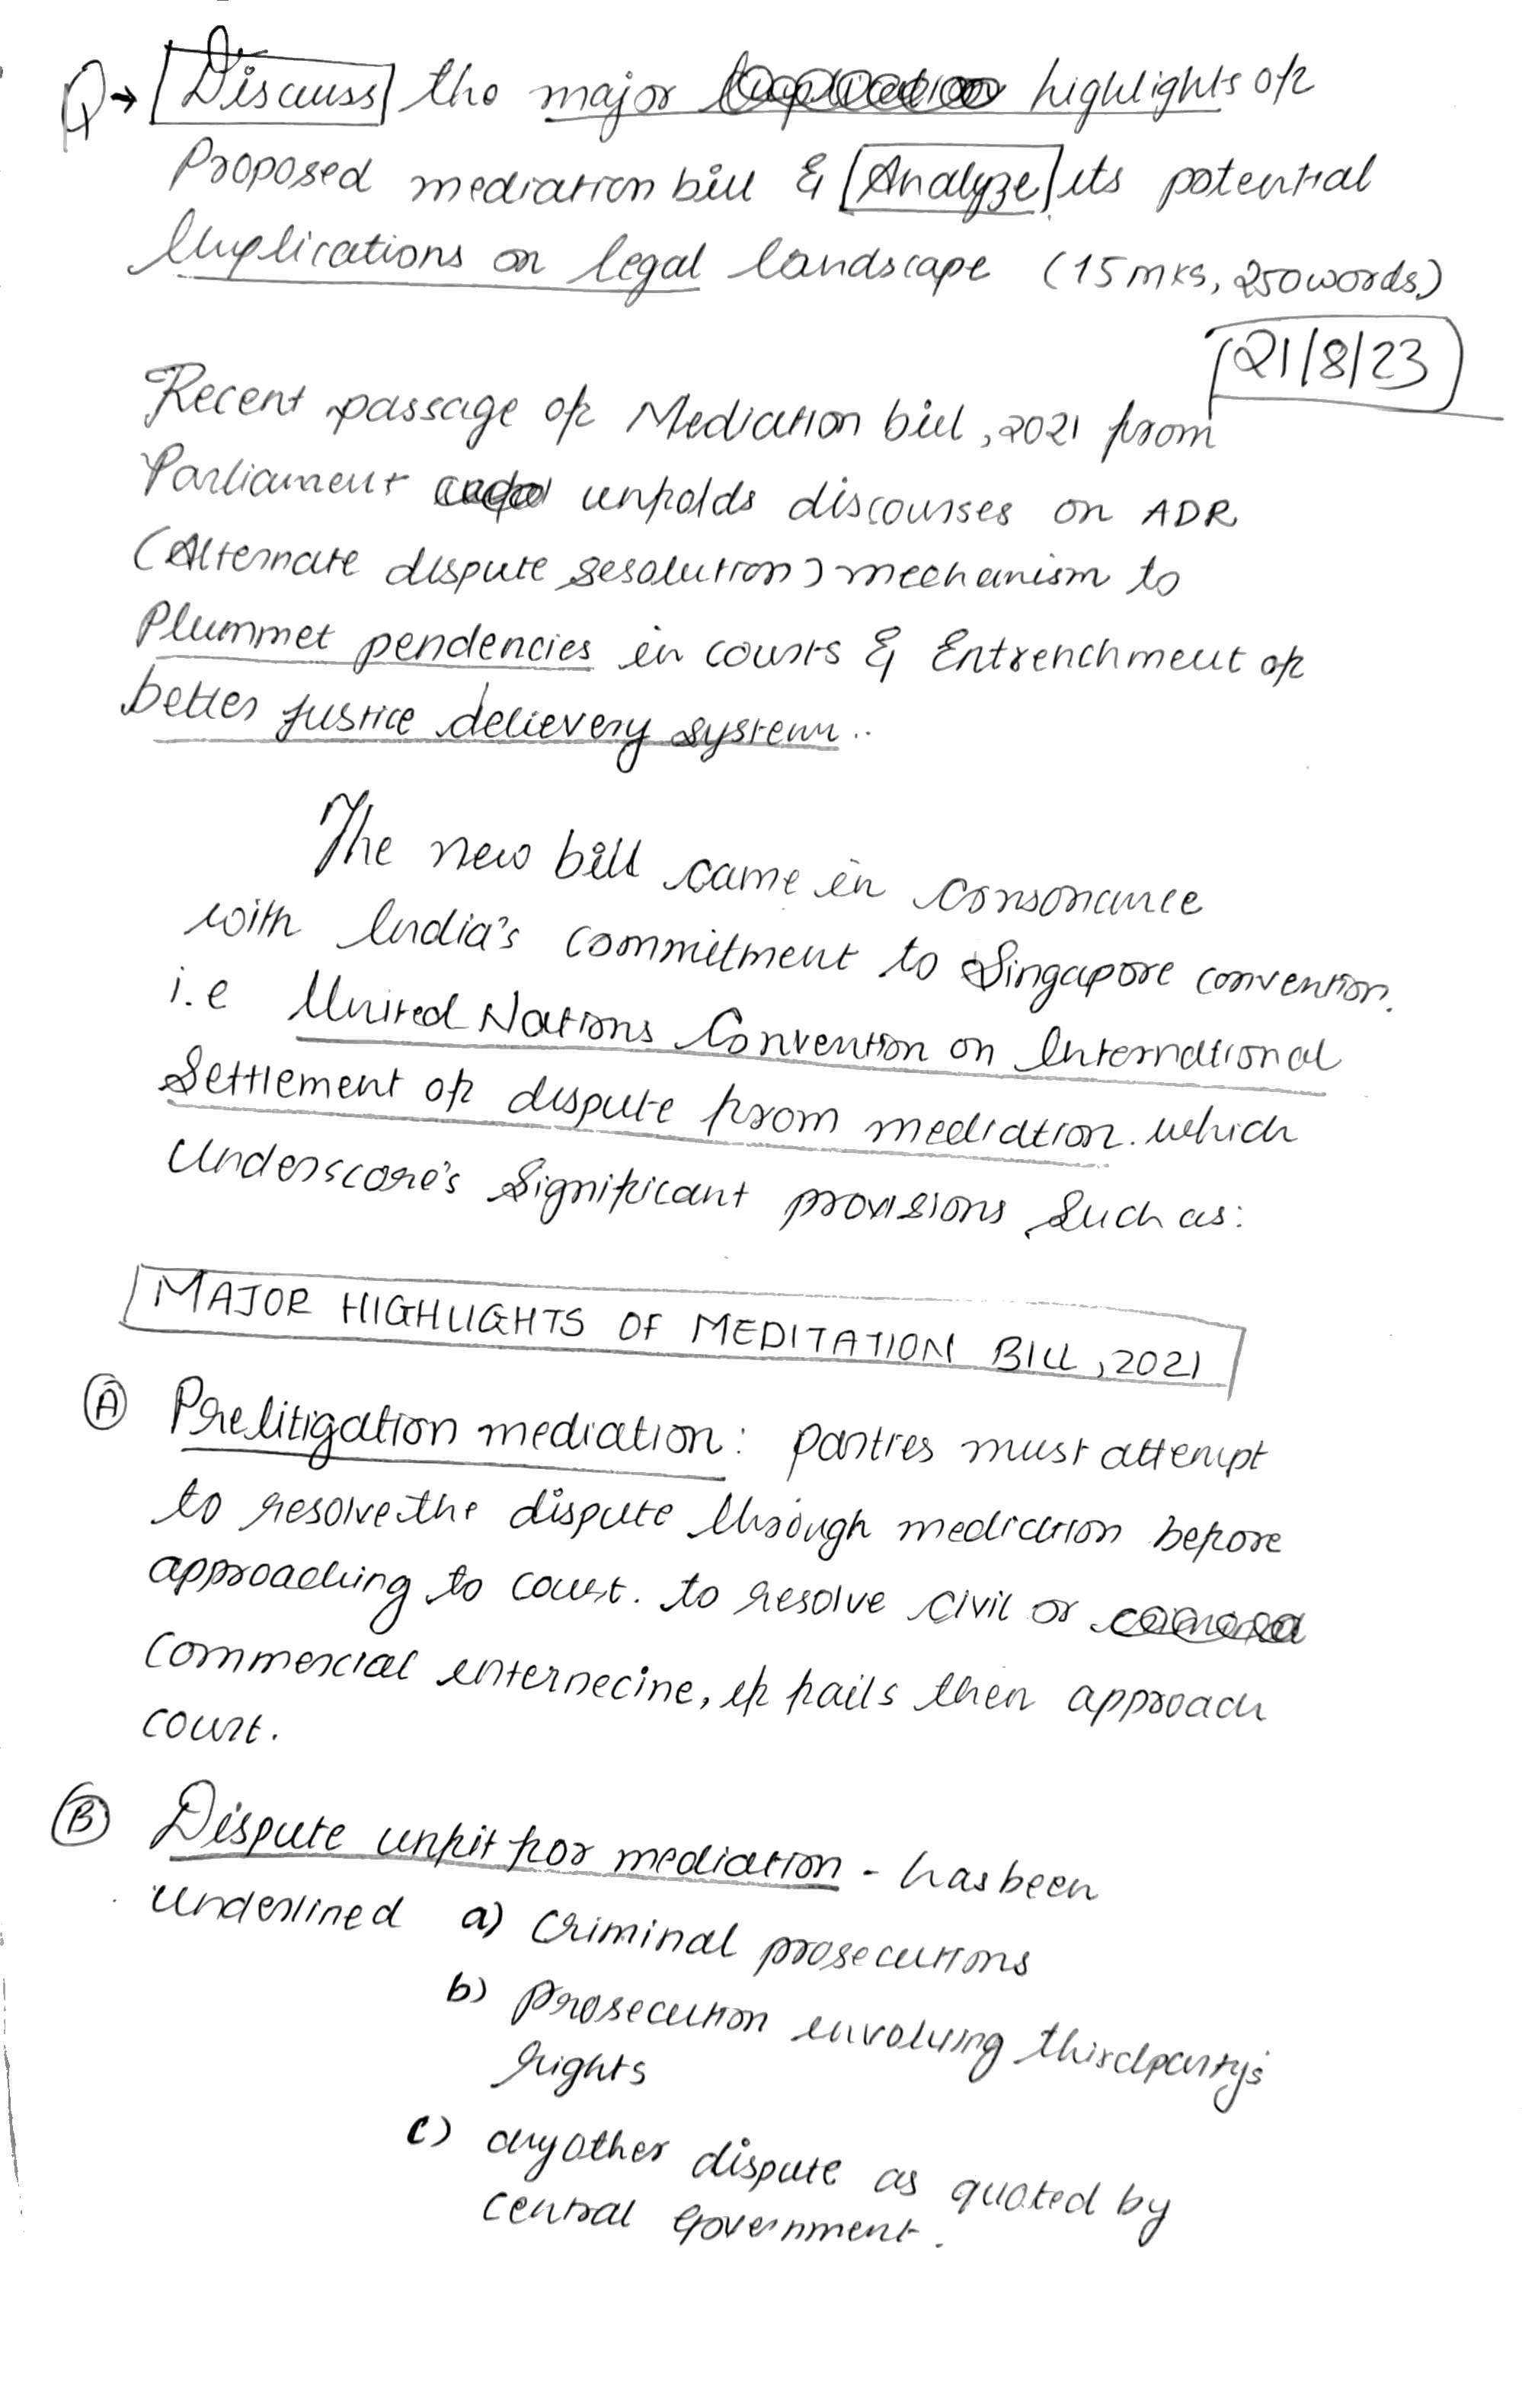 Q→ Discuss the major highlights of
Proposed mediation bill & Analyze its potential
Implications on legal landscape (15 mks, 250 words)
21/8/23
Recent passage of Mediation bill, 2021 from
Parliament unfolds discourses on ADR
(Alternate dispute resolution) mechanism to
Plummet pendencies in courts & Entrenchment of
better justice delievery system..
The new bill came in consonance
with India's commitment to Singapore convention.
i.e United Nations Convention on International
Settlement of dispute from mediation. which
Underscore's Significant provisions such as:
MAJOR HIGHLIGHTS OF MEDITATION BILL, 2021
A Prelitigation mediation: parties must attempt
to resolve the dispute through mediation before
approaching to court. to resolve civil or
commercial internecine, if fails then approach
court.
B Dispute unfit for mediation - has been
Underlined a) Criminal prosecutions
b) Prosecution involving thirdparty's
rights
c) anyother dispute as quoted by
central Government.